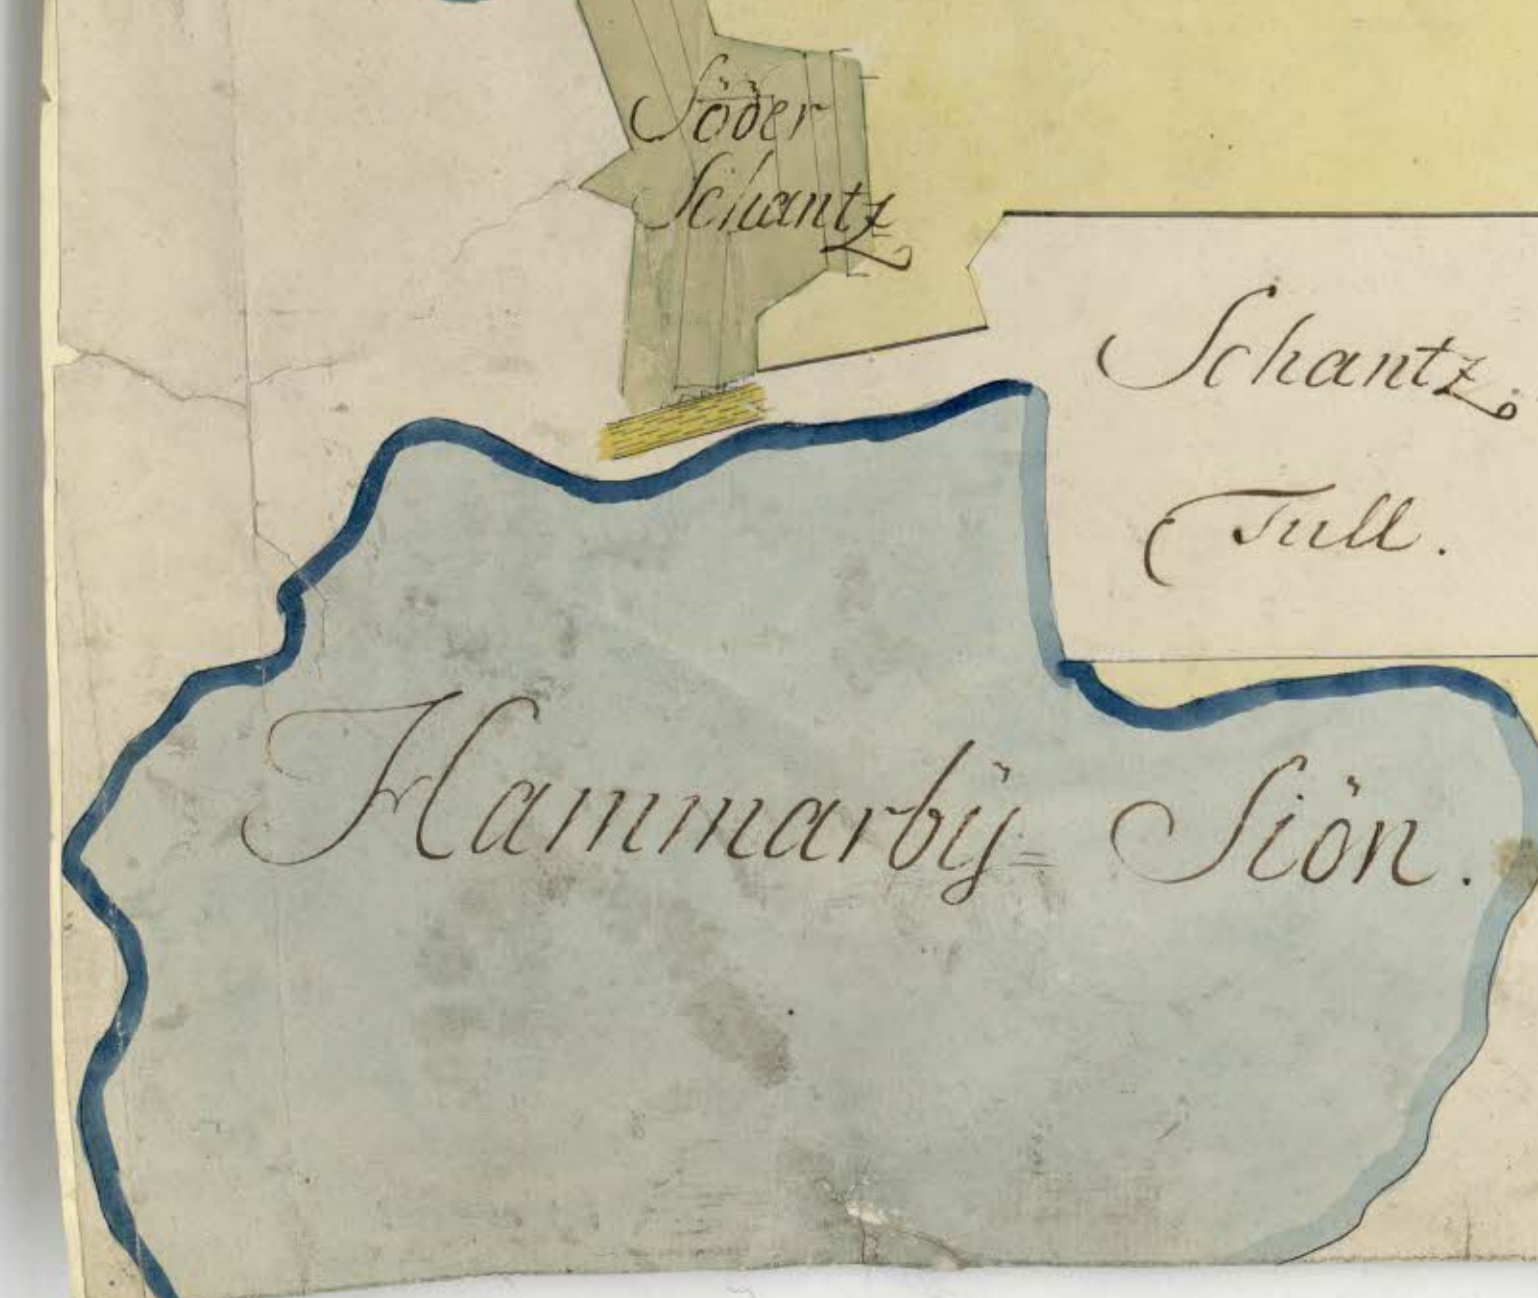 Söder
Schantz
Schantz.
Tull.
Hammarbÿ= Siön.